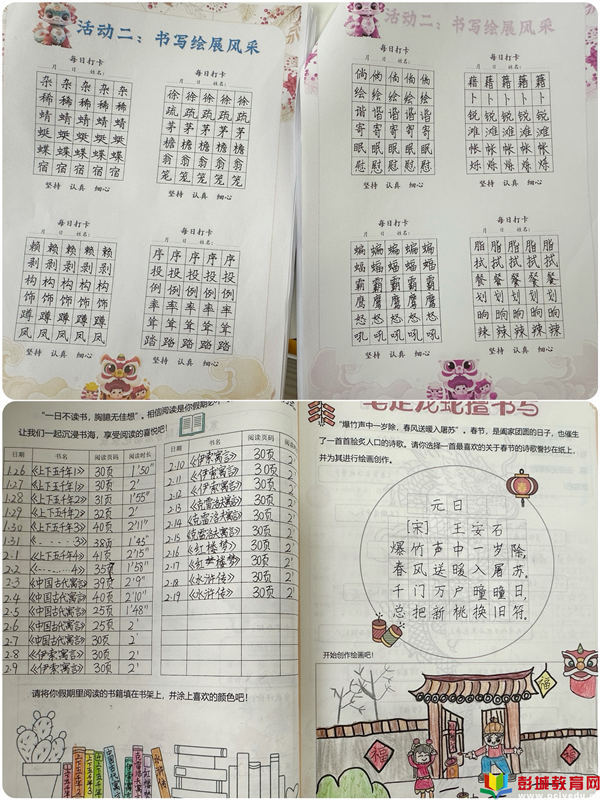 活动二：书写绘展风采
每日打卡
月 日 姓名：
杂杂杂杂杂
稀稀稀稀稀
蜻蜻蜻蜻蜻
蜓蜓蜓蜓蜓
蝶蝶蝶蝶蝶
宿宿宿宿宿
坚持 认真 细心
每日打卡
月 日 姓名：
徐徐徐徐徐
疏疏疏疏疏
茅茅茅茅茅
檐檐檐檐檐
翁翁翁翁翁
笼笼笼笼笼
坚持 认真 细心
每日打卡
月 日 姓名：
赖赖赖赖赖
剥剥剥剥剥
构构构构构
饰饰饰饰饰
蹲蹲蹲蹲蹲
凤凤凤凤凤
坚持 认真 细心
每日打卡
月 日 姓名：
序序序序序
投投投投投
例例例例例
率率率率率
耸耸耸耸耸
踏踏踏踏踏
坚持 认真 细心
活动二：书写绘展风采
每日打卡
月 日 姓名：
倘倘倘倘倘
绘绘绘绘绘
谐谐谐谐谐
寄寄寄寄寄
眠眠眠眠眠
慰慰慰慰慰
坚持 认真 细心
每日打卡
月 日 姓名：
藉藉藉藉藉
卜卜卜卜卜
锐锐锐锐锐
滩滩滩滩滩
帐帐帐帐帐
烁烁烁烁烁
坚持 认真 细心
每日打卡
月 日 姓名：
蝙蝙蝙蝙蝙
蝠蝠蝠蝠蝠
霸霸霸霸霸
鹰鹰鹰鹰鹰
怒怒怒怒怒
吼吼吼吼吼
坚持 认真 细心
每日打卡
月 日 姓名：
脂脂脂脂脂
拭拭拭拭拭
餐餐餐餐餐
划划划划划
晌晌晌晌晌
辣辣辣辣辣
坚持 认真 细心
“一日不读书，胸臆无佳想”。相信阅读是你假期必不
让我们一起沉浸书海，享受阅读的喜悦吧！
日期 书名 阅读页码 阅读时长
1.26 《上下五千年1》 30页 1'50"
1.27 《上下五千年1》 30页 2'
1.28 《上下五千年2》 31页 1'55"
1.29 《上下五千年2》 32页 2'
1.30 《上下五千年3》 40页 2'11"
1.31 《......3》 38页 1'45"
2.1 《上下五千年4》 41页 2'15"
2.2 《......4》 35页 1'58"
2.3 《中国古代寓言》 39页 2'9"
2.4 《中国古代寓言》 40页 2'10"
2.5 《中国古代寓言》 25页 1'48"
2.6 《中国古代寓言》 25页 2'
2.7 《中国古代寓言》 30页 2'
2.8 《伊索寓言》 30页 2'
2.9 《伊索寓言》 30页 2'
日期 书名 阅读页码 阅
2.10 《伊索寓言》 30页 2'
2.11 《伊索寓言》 30页 2'
2.12 《伊索寓言》 30页 2'
2.13 《克雷洛夫寓言》 30页 2'
2.14 《克雷洛夫寓言》 30页 2'
2.15 《克雷洛夫寓言》 30页 2'
2.16 《红楼梦》 30页 2'
2.17 《红楼梦》 30页 2'
2.18 《水浒传》 30页 2'
2.19 《水浒传》 30页 2'
请将你假期里阅读的书籍填在书架上，并涂上喜欢的颜色吧！
笔走龙蛇擅书写
“爆竹声中一岁除，春风送暖入屠苏”。春节，是阖家团圆的日子，也催生
了一首首脍炙人口的诗歌。请你选择一首最喜欢的关于春节的诗歌誊抄在纸上，
并为其进行绘画创作。
元日
［宋］ 王安石
爆竹声中一岁除，
春风送暖入屠苏。
千门万户曈曈日，
总把新桃换旧符。
开始创作绘画吧！
福
福
福
彭城教育网